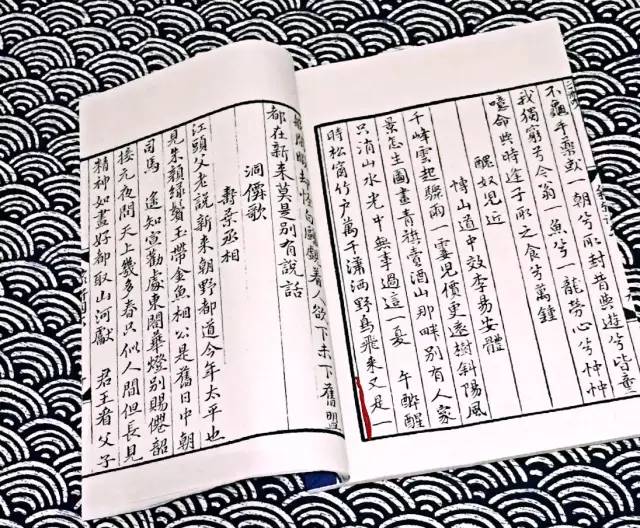 不龜手藥或一朝兮取封昔與遊兮皆童
我獨窮兮今翁一魚兮一龍勞心兮忡忡
噫命與時逢子取之食兮萬鍾
醜奴兒近
博山道中效李易安體
千峰雲起驟雨一霎兒價更遠樹斜陽風
景怎生圖畫青旗賣酒山那畔別有人家
只消山水光中無事過這一夏 午醉醒
時松窗竹戶萬千瀟洒野鳥飛來又是一
般閑暇却怪白鷗覷着人欲下未下舊盟
都在新來莫是別有說話
洞僊歌
壽葉丞相
江頭父老說新來朝野都道今年太平也
見朱顏綠鬢玉帶金魚相公是舊日中朝
司馬 遙知宣勸處東閤華燈別賜僊韶
接元夜問天上幾多春只似人間但長見
精神如畫好都取山河獻 君王看父子